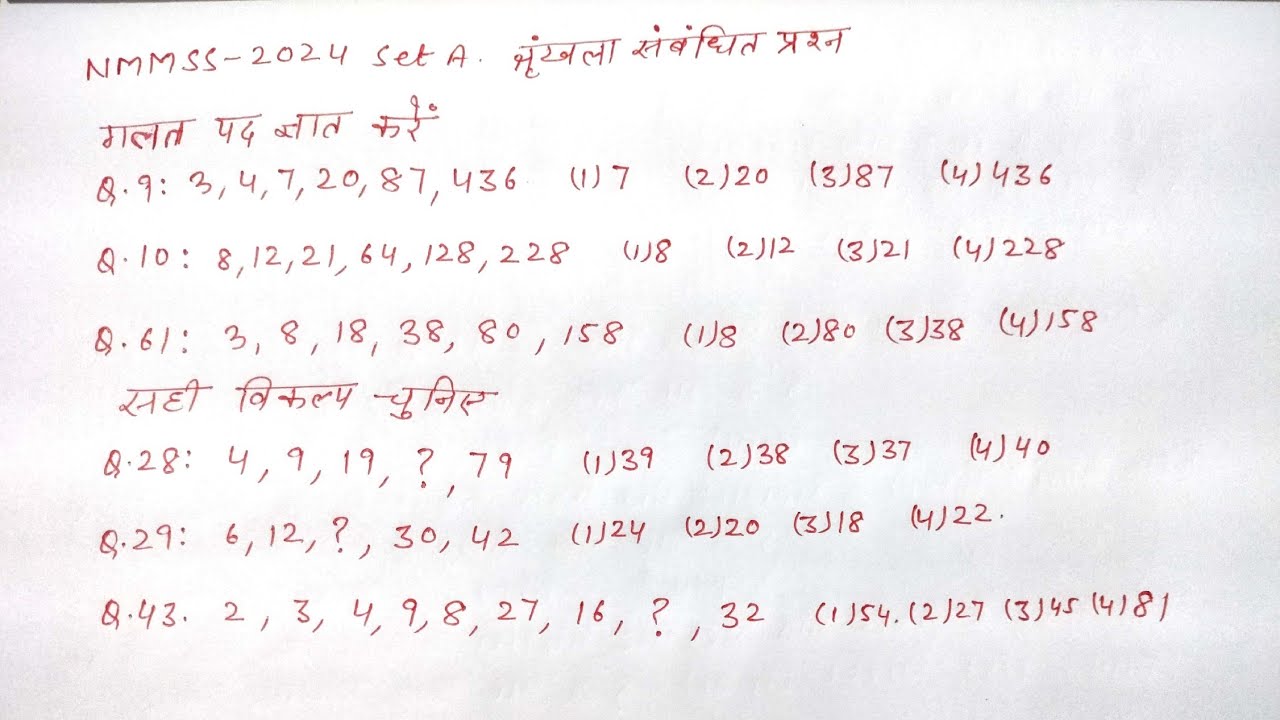 NMMSS-2024 Set A. श्रृंखला संबंधित प्रश्न
गलत पद ज्ञात करें
Q.9: 3, 4, 7, 20, 87, 436 (1) 7 (2) 20 (3) 87 (4) 436
Q.10: 8, 12, 21, 64, 128, 228 (1) 8 (2) 12 (3) 21 (4) 228
Q.61: 3, 8, 18, 38, 80, 158 (1) 8 (2) 80 (3) 38 (4) 158
सही विकल्प चुनिए
Q.28: 4, 9, 19, ?, 79 (1) 39 (2) 38 (3) 37 (4) 40
Q.29: 6, 12, ?, 30, 42 (1) 24 (2) 20 (3) 18 (4) 22.
Q.43. 2, 3, 4, 9, 8, 27, 16, ?, 32 (1) 54. (2) 27 (3) 45 (4) 81